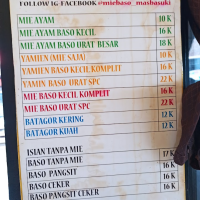 FOLLOW IG-FACEBOOK @miebaso_masbasuki
MIE AYAM 10 K
MIE AYAM BASO KECIL 16 K
MIE AYAM BASO URAT BESAR 18 K
YAMIEN (MIE SAJA) 10 K
YAMIEN BASO KECIL KOMPLIT 16 K
YAMIN BASO URAT SPC 22 K
MIE BASO KECIL KOMPLIT 16 K
MIE BASO URAT SPC 22 K
BATAGOR KERING 12 K
BATAGOR KUAH 12 K
ISIAN TANPA MIE
BASO TANPA MIE 17 K
BASO PANGSIT 16 K
BASO CEKER 16 K
BASO PANGSIT CEKER 16 K